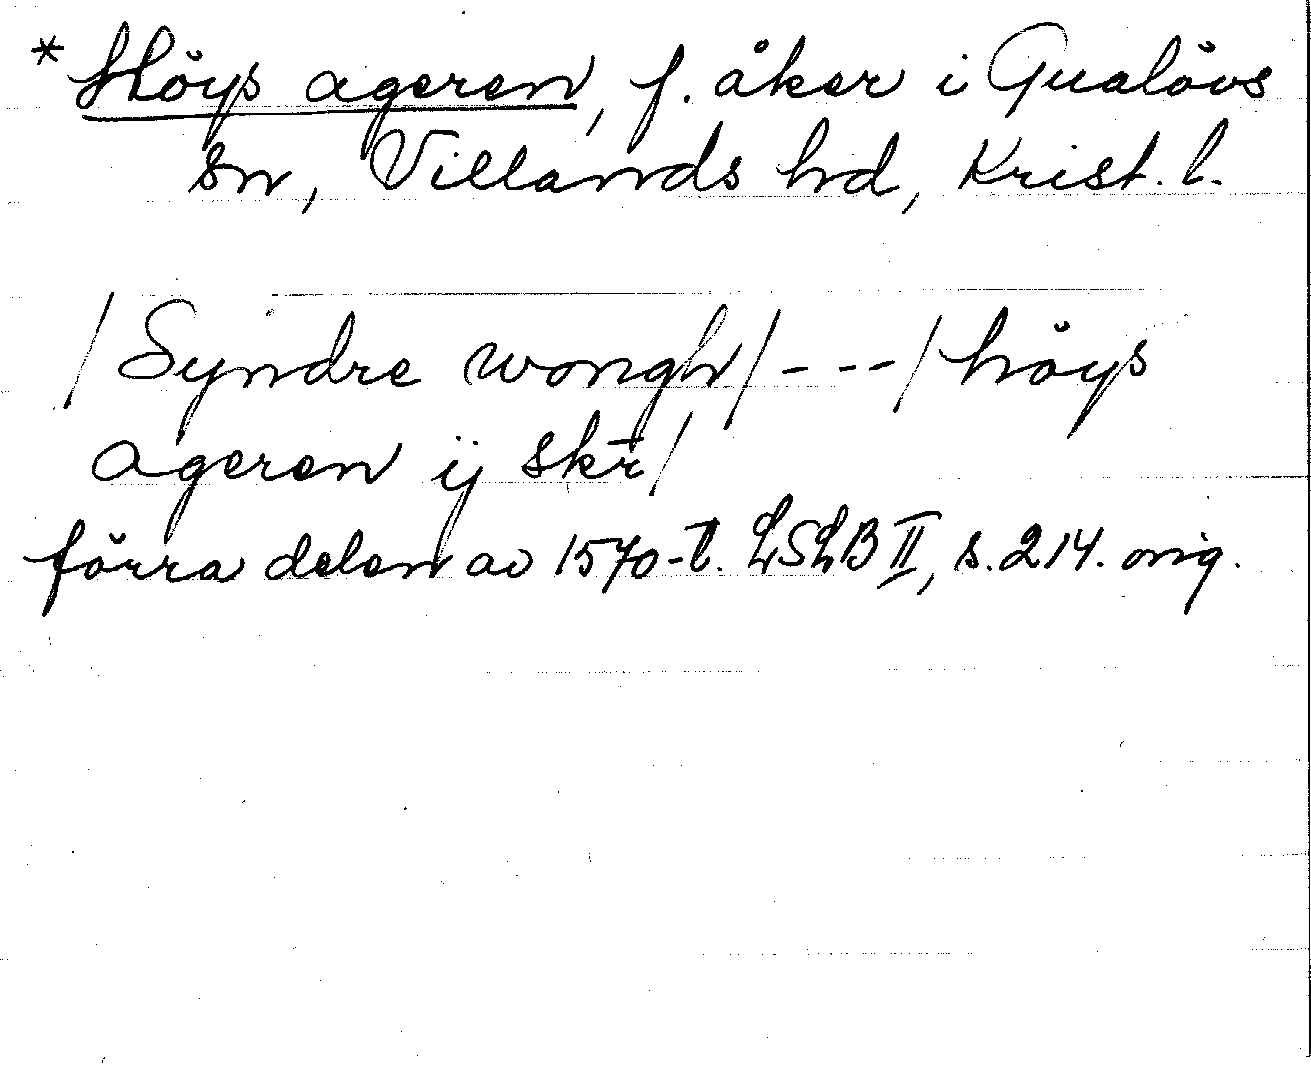 * Höys ageren, f. åker i Gualövs
sn, Villands hd, Krist. l.
/Syndre wongh/---/höys
ageren ij skr̄/
förra delen av 1570-t. LSLB II, s. 214. orig.